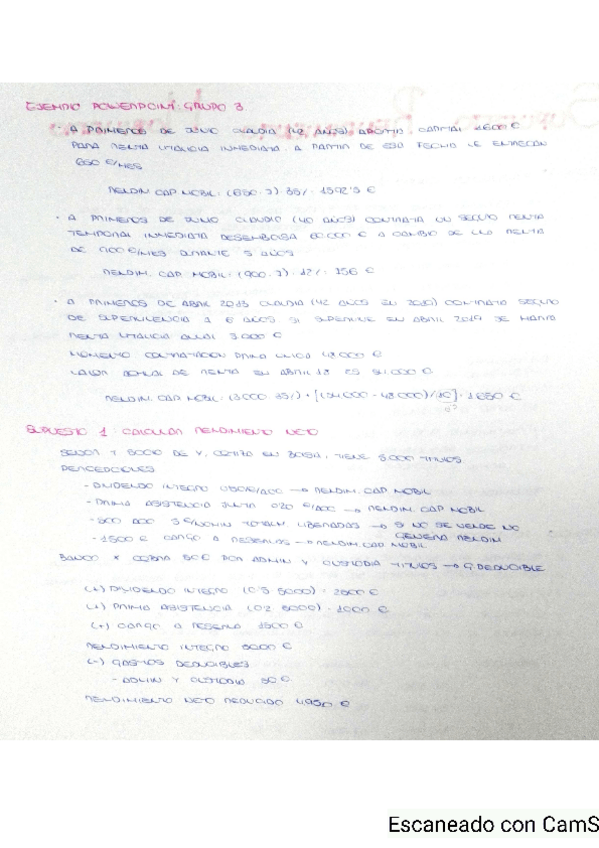 EJEMPLO POWERPOINT: GRUPO 3
· A PRIMEROS DE JUNIO CLAUDIA (42 AÑOS) APORTA CAPITAL €
PARA RENTA VITALICIA INMEDIATA. A PARTIR DE ESA FECHA LE ENTREGAN
650 €/MES
RENDIM CAP MOBIL: (650·7)·35% = 1592'5 €
· A PRIMEROS DE JUNIO CLAUDIO (40 AÑOS) CONTRATA UN SEGURO RENTA
TEMPORAL INMEDIATA DESEMBOLSA 60.000 € A CAMBIO DE UNA RENTA
DE €/MES DURANTE 5 AÑOS
RENDIM. CAP MOBIL: (900·7)·12% = 756 €
· A PRIMEROS DE ABRIL 2013 CLAUDIA (42 AÑOS EN) CONTRATA SEGURO
DE SUPERVIVENCIA A 6 AÑOS SI SUPERVIVE EN ABRIL 2019 SE HARÁ
RENTA VITALICIA ANUAL 3.000 €
MOMENTO CONTRATACION PRIMA UNICA 48.000 €
VALOR ACTUAL DE RENTA EN ABRIL 19 ES 54.000 €
RENDIM. CAP MOBIL: (3.000·35%) + [(54.000 - 48.000)/10] = 1650 €
SUPUESTO 1: CALCULAR RENDIMIENTO NETO
SEÑOR Y SOCIO DE V, COTIZA EN BOLSA, TIENE 5.000 TITULOS.
PERCEPCIONES
- DIVIDENDO INTEGRO → RENDIM. CAP MOBIL
- PRIMA ASISTENCIA JUNTA 0'20 €/ACC → RENDIM. CAP MOBIL
- 500 ACC 3 €/NOMIN TOTALM. LIBERADAS → SI NO SE VENDE NO
GENERA RENDIM
- 1500 € CARGO A RESERVAS → RENDIM. CAP MOBIL
BANCO X COBRA 50 € POR ADMIN Y CUSTODIA TITULOS → G. DEDUCIBLE
(+) DIVIDENDO INTEGRO (0'5·5000) = 2500 €
(+) PRIMA ASISTENCIA (0'2·5000) = 1000 €
(+) CARGO A RESERVA 1500 €
RENDIMIENTO INTEGRO 5000 €
(-) GASTOS DEDUCIBLES
- ADMIN Y CUSTODIA 50 €
RENDIMIENTO NETO REDUCIDO 4.950 €
Escaneado con CamS